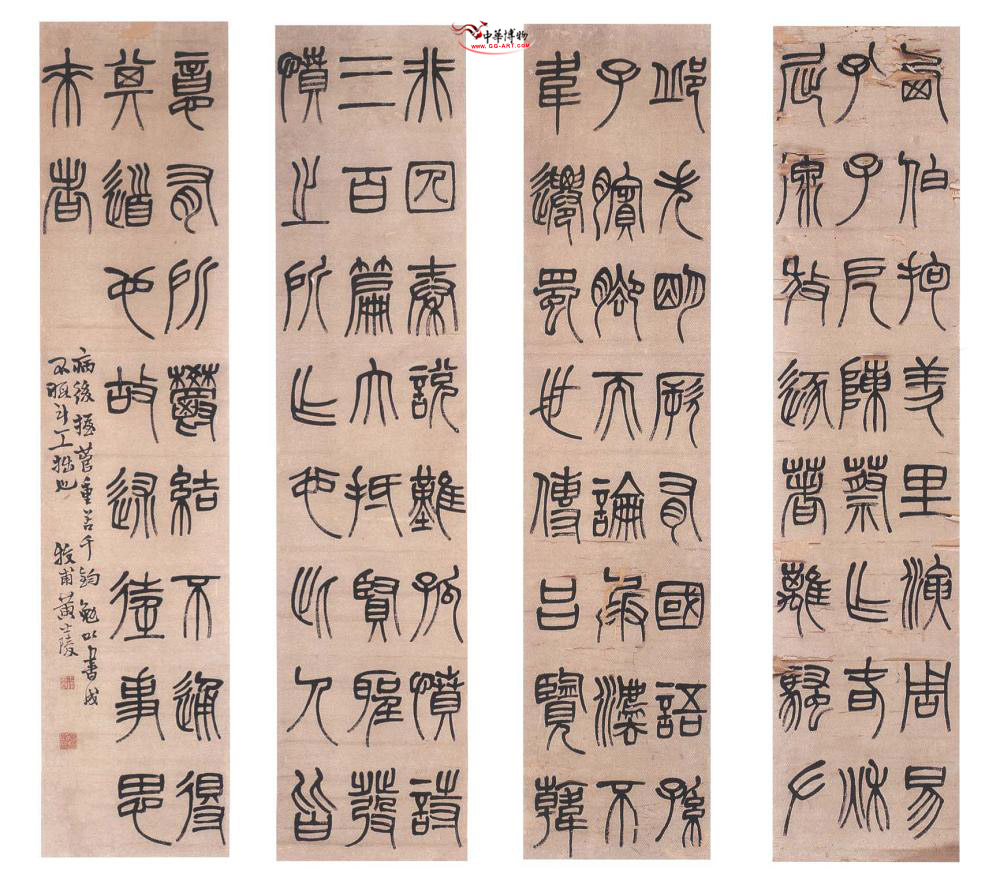 中華博物
WWW.GG-ART.COM
西伯拘羑里演周易
孔子戹陳蔡作春秋
屈原放逐著離騷𠂇
邱失明厥有國語孫
子臏腳而論兵法不
韋遷蜀世傳呂覽韓
非囚秦說難孤憤詩
三百篇大抵賢聖發
憤之所作也此人皆
意有所鬱結不通得
其道也故述往事思
來者
病後握管重若千鈞勉以書成
不暇計工拙也 牧甫黃士陵